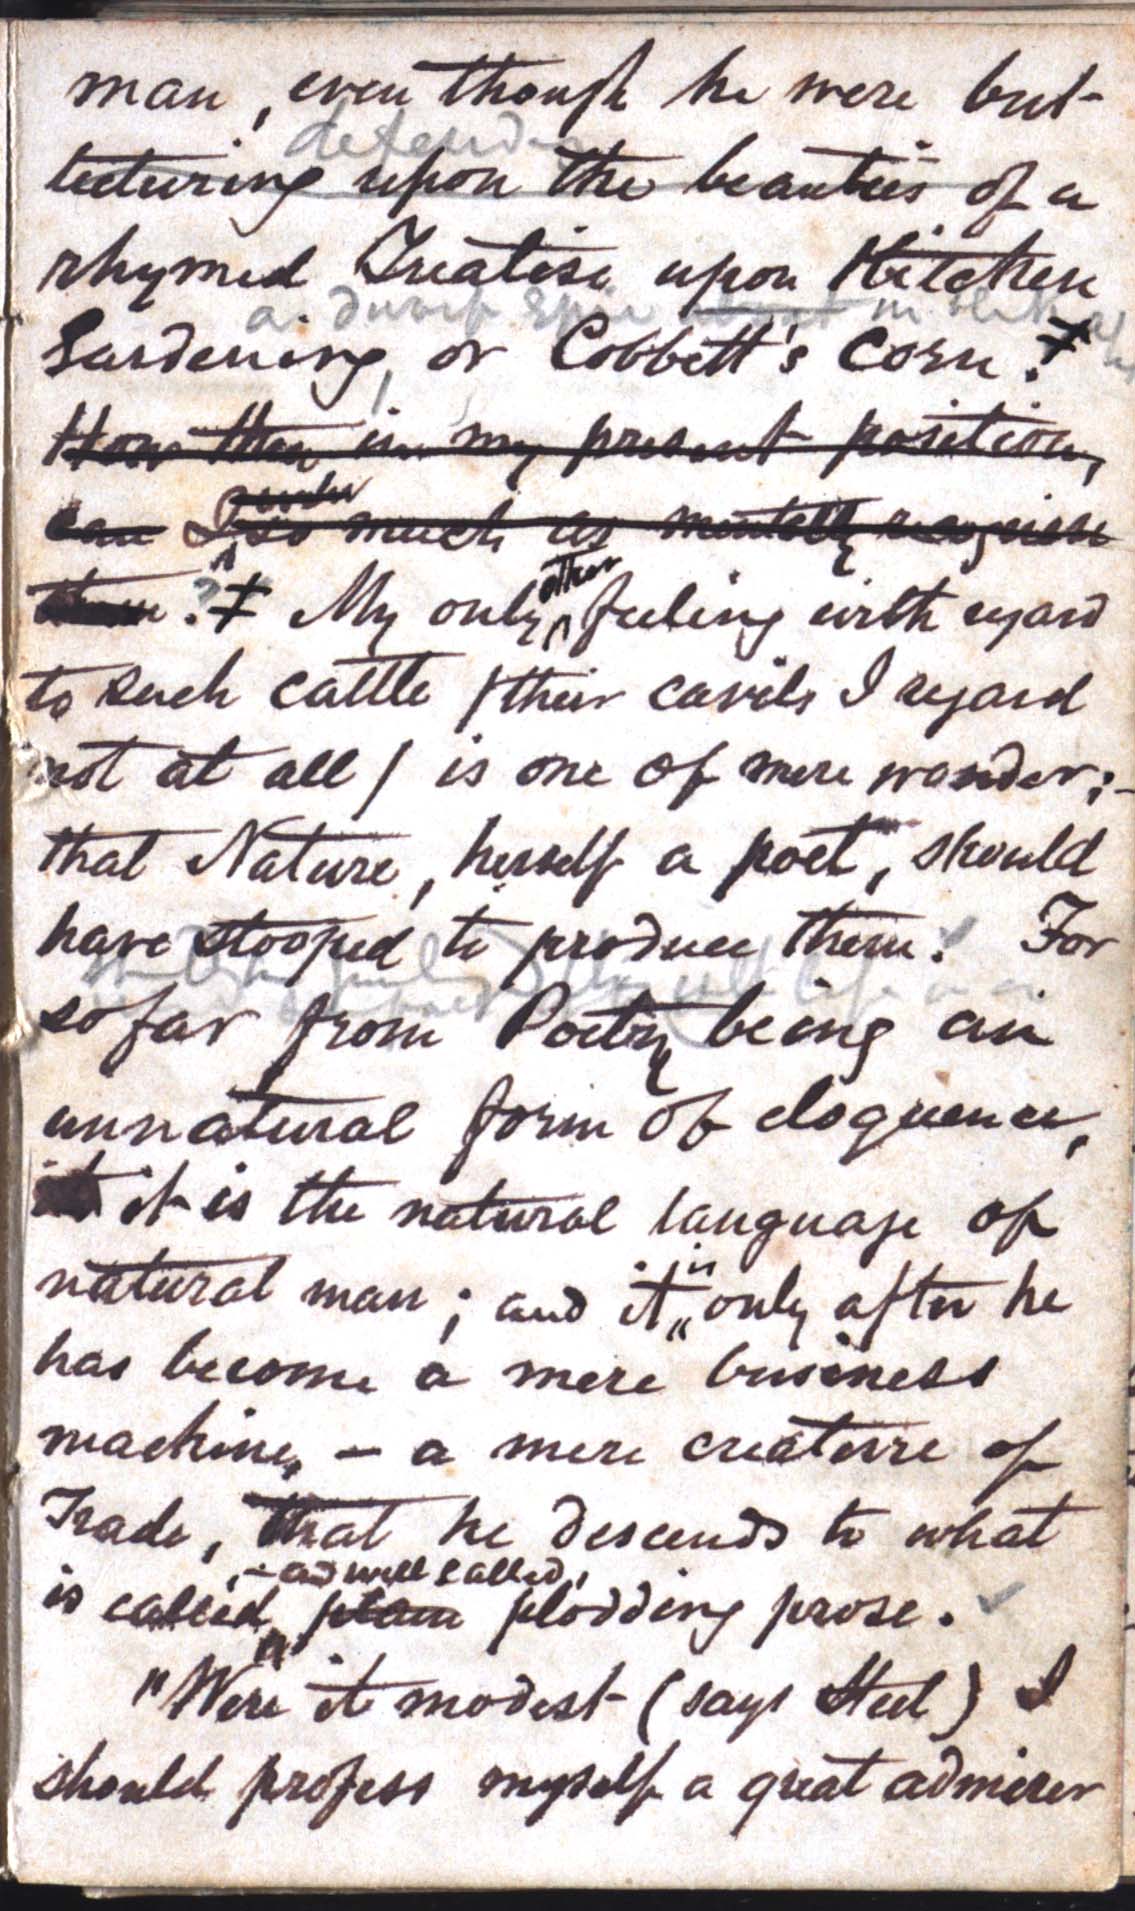 man, even though he were but
defending
lecturing upon the beauties of a
rhymed Treatise upon Kitchen
a dwarf Epic
Gardening, or Cobbett's Corn. ‡
How then in my present position,
can I so much as mentally recognise
them? ‡ My only other feeling with regard
to such cattle / their cavils I regard
not at all / is one of mere wonder;—
that Nature, herself a poet, should
have stooped to produce them. For
so far from Poetry being an
unnatural form of eloquence,
it is the natural language of
natural man; and it is only after he
has become a mere business
machine, — a mere creature of
Trade, that he descends to what
is called, — as well called, plain plodding prose.
"Were it modest (says Steel) I
should profess myself a great admirer